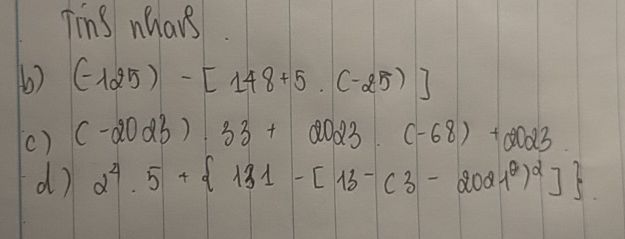 Tính nhanh.
b) (-125) - [148 + 5 . (-25)]
c) (-2023) . 33 + 2023 . (-68) + 2023.
d) 2⁴ . 5 + { 131 - [ 13 - (3 - 2021⁰)² ] }.